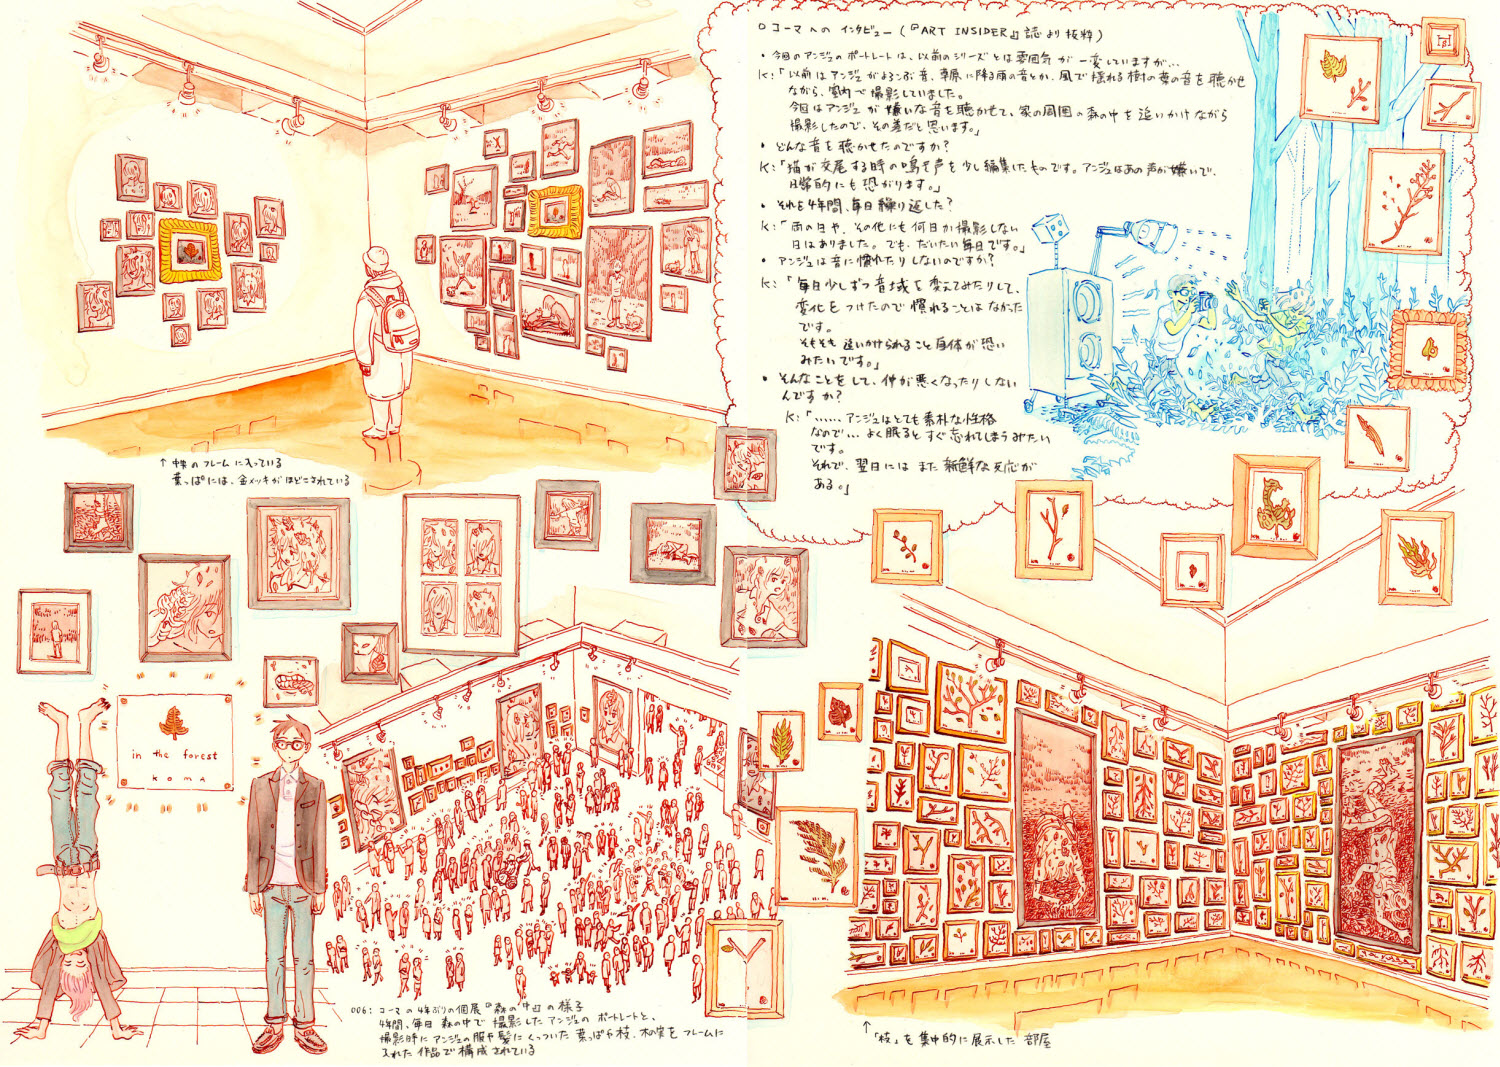 ○ コーマへの インタビュー (『ART INSIDER』誌より抜粋)
• 今回のアンジュのポートレートは、以前のシリーズとは雰囲気が一変していますが…
K:「以前はアンジュがよろこぶ音、草原に降る雨の音とか、風で揺れる樹の葉の音を聴かせ
ながら、室内で撮影していました。
今回はアンジュが嫌いな音を聴かせて、家の周囲の森の中を追いかけながら
撮影したので、その差だと思います。」
• どんな音を聴かせたのですか?
K:「猫が交尾する時の鳴き声を少し編集したものです。アンジュはあの声が嫌いで、
日常的にも恐がります。」
• それを4年間、毎日繰り返した?
K:「雨の日や、その他にも何日か撮影しない
日はありました。でも、だいたい毎日です。」
• アンジュは音に慣れたりしないのですか?
K:「毎日少しずつ音域を変えてみたりして、
変化をつけたので慣れることはなかった
です。
そもそも追いかけられること自体が恐い
みたいです。」
• そんなことをして、仲が悪くなったりしない
んですか?
K:「……アンジュはとても素朴な性格
なので…よく眠るとすぐ忘れてしまうみたい
です。
それで、翌日にはまた新鮮な反応が
ある。」
↑ 中央のフレームに入っている
葉っぱには、金メッキがほどこされている
in the forest
KOMA
006: コーマの4年ぶりの個展『森の中』の様子
4年間、毎日森の中で撮影したアンジュのポートレートと、
撮影時にアンジュの服や髪にくっついた葉っぱや枝、木の実をフレームに
入れた作品で構成されている
↑
「枝」を集中的に展示した部屋